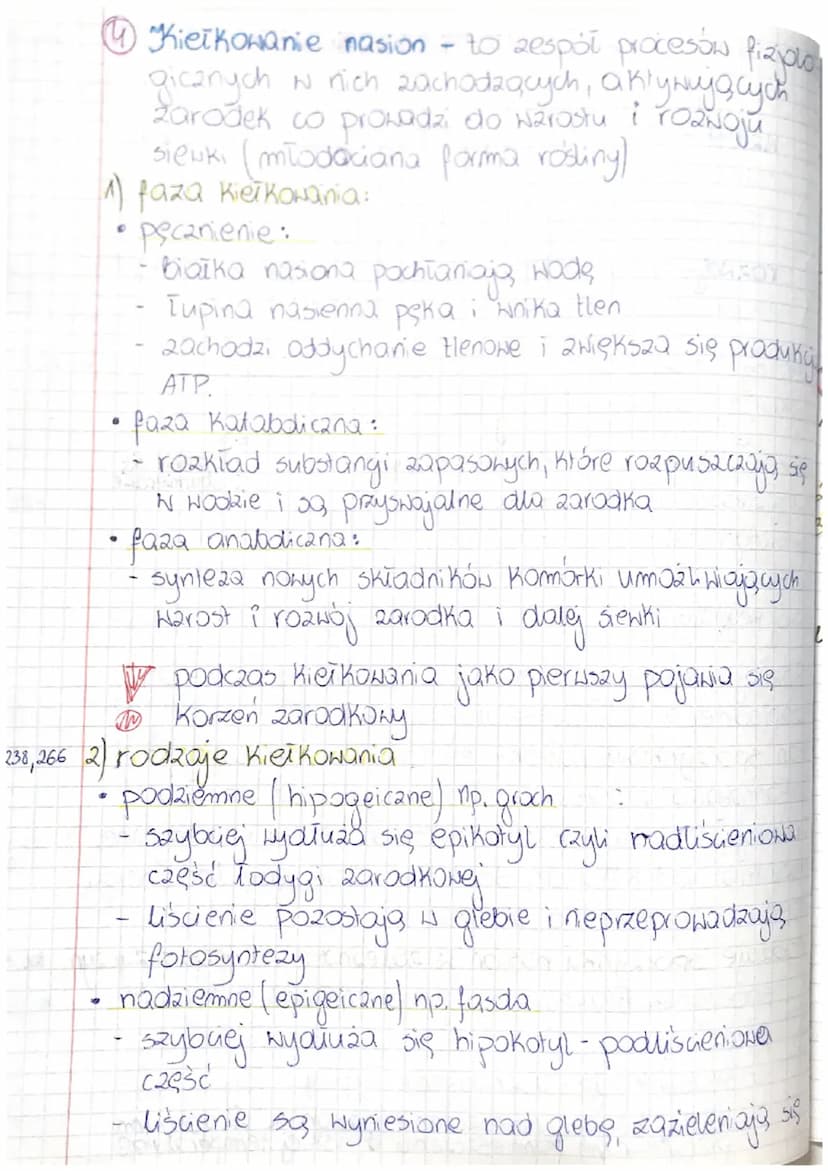 4 Kiełkowanie nasion - to zespół procesów fizjolo-
gicznych w nich zachodzących, aktywujących
zarodek co prowadzi do wzrostu i rozwoju
siewki (młodociana forma rośliny)
1) faza kiełkowania:
• pęcznienie:
- białka nasiona pochłaniają wodę
- łupina nasienna pęka i wnika tlen
- zachodzi oddychanie tlenowe i zwiększa się produkcja
ATP.
• faza kataboliczna:
- rozkład substancji zapasowych, które rozpuszczają się
w wodzie i są przyswajalne dla zarodka
• faza anaboliczna:
- synteza nowych składników komórki umożliwiających
wzrost i rozwój zarodka i dalej siewki
podczas kiełkowania jako pierwszy pojawia się
korzeń zarodkowy
238,266 2) rodzaje kiełkowania
• podziemne (hipogeiczne) np. groch :
- szybciej wydłuża się epikotyl czyli nadliścieniowa
część łodygi zarodkowej
- liścienie pozostają w glebie i nieprzeprowadzają
fotosyntezy
• nadziemne (epigeiczne) np. fasola
- szybciej wydłuża się hipokotyl - podliścieniowa
część
- liścienie są wyniesione nad glebę, zazieleniają się